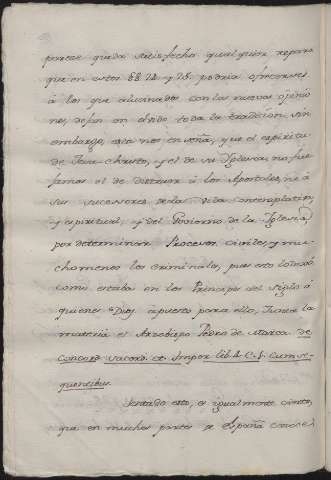 parece queda satisfecho qualquier reparo
que en estos §§ 24 y 25. podria ofrecerse
à los que alucinados con las nuevas opinio
nes, dejan en olvido toda la tradicion, sin
embargo, esta nos enseña, que el espiritu
de Jesu Christo, y el de su Iglesia no fue
jamas el de distraer à los Apostoles, ni à
sus succesores de la vida contemplativa,
y espiritual, y del Govierno de la Iglesia,
por determinar Procesos civiles, y mu-
cho menos los criminales, pues esto lo dexó
como estaba en los Principes del siglo à
quienes Dios. à puesto para ello, la
materia el Arzobispo Pedro de Marca de
Concord. sacerd. et Imper. lib. 2. C. 5. cum se-
quentibus.
Sentado esto, es igualmente cierto,
que en muchas partes de España conoce